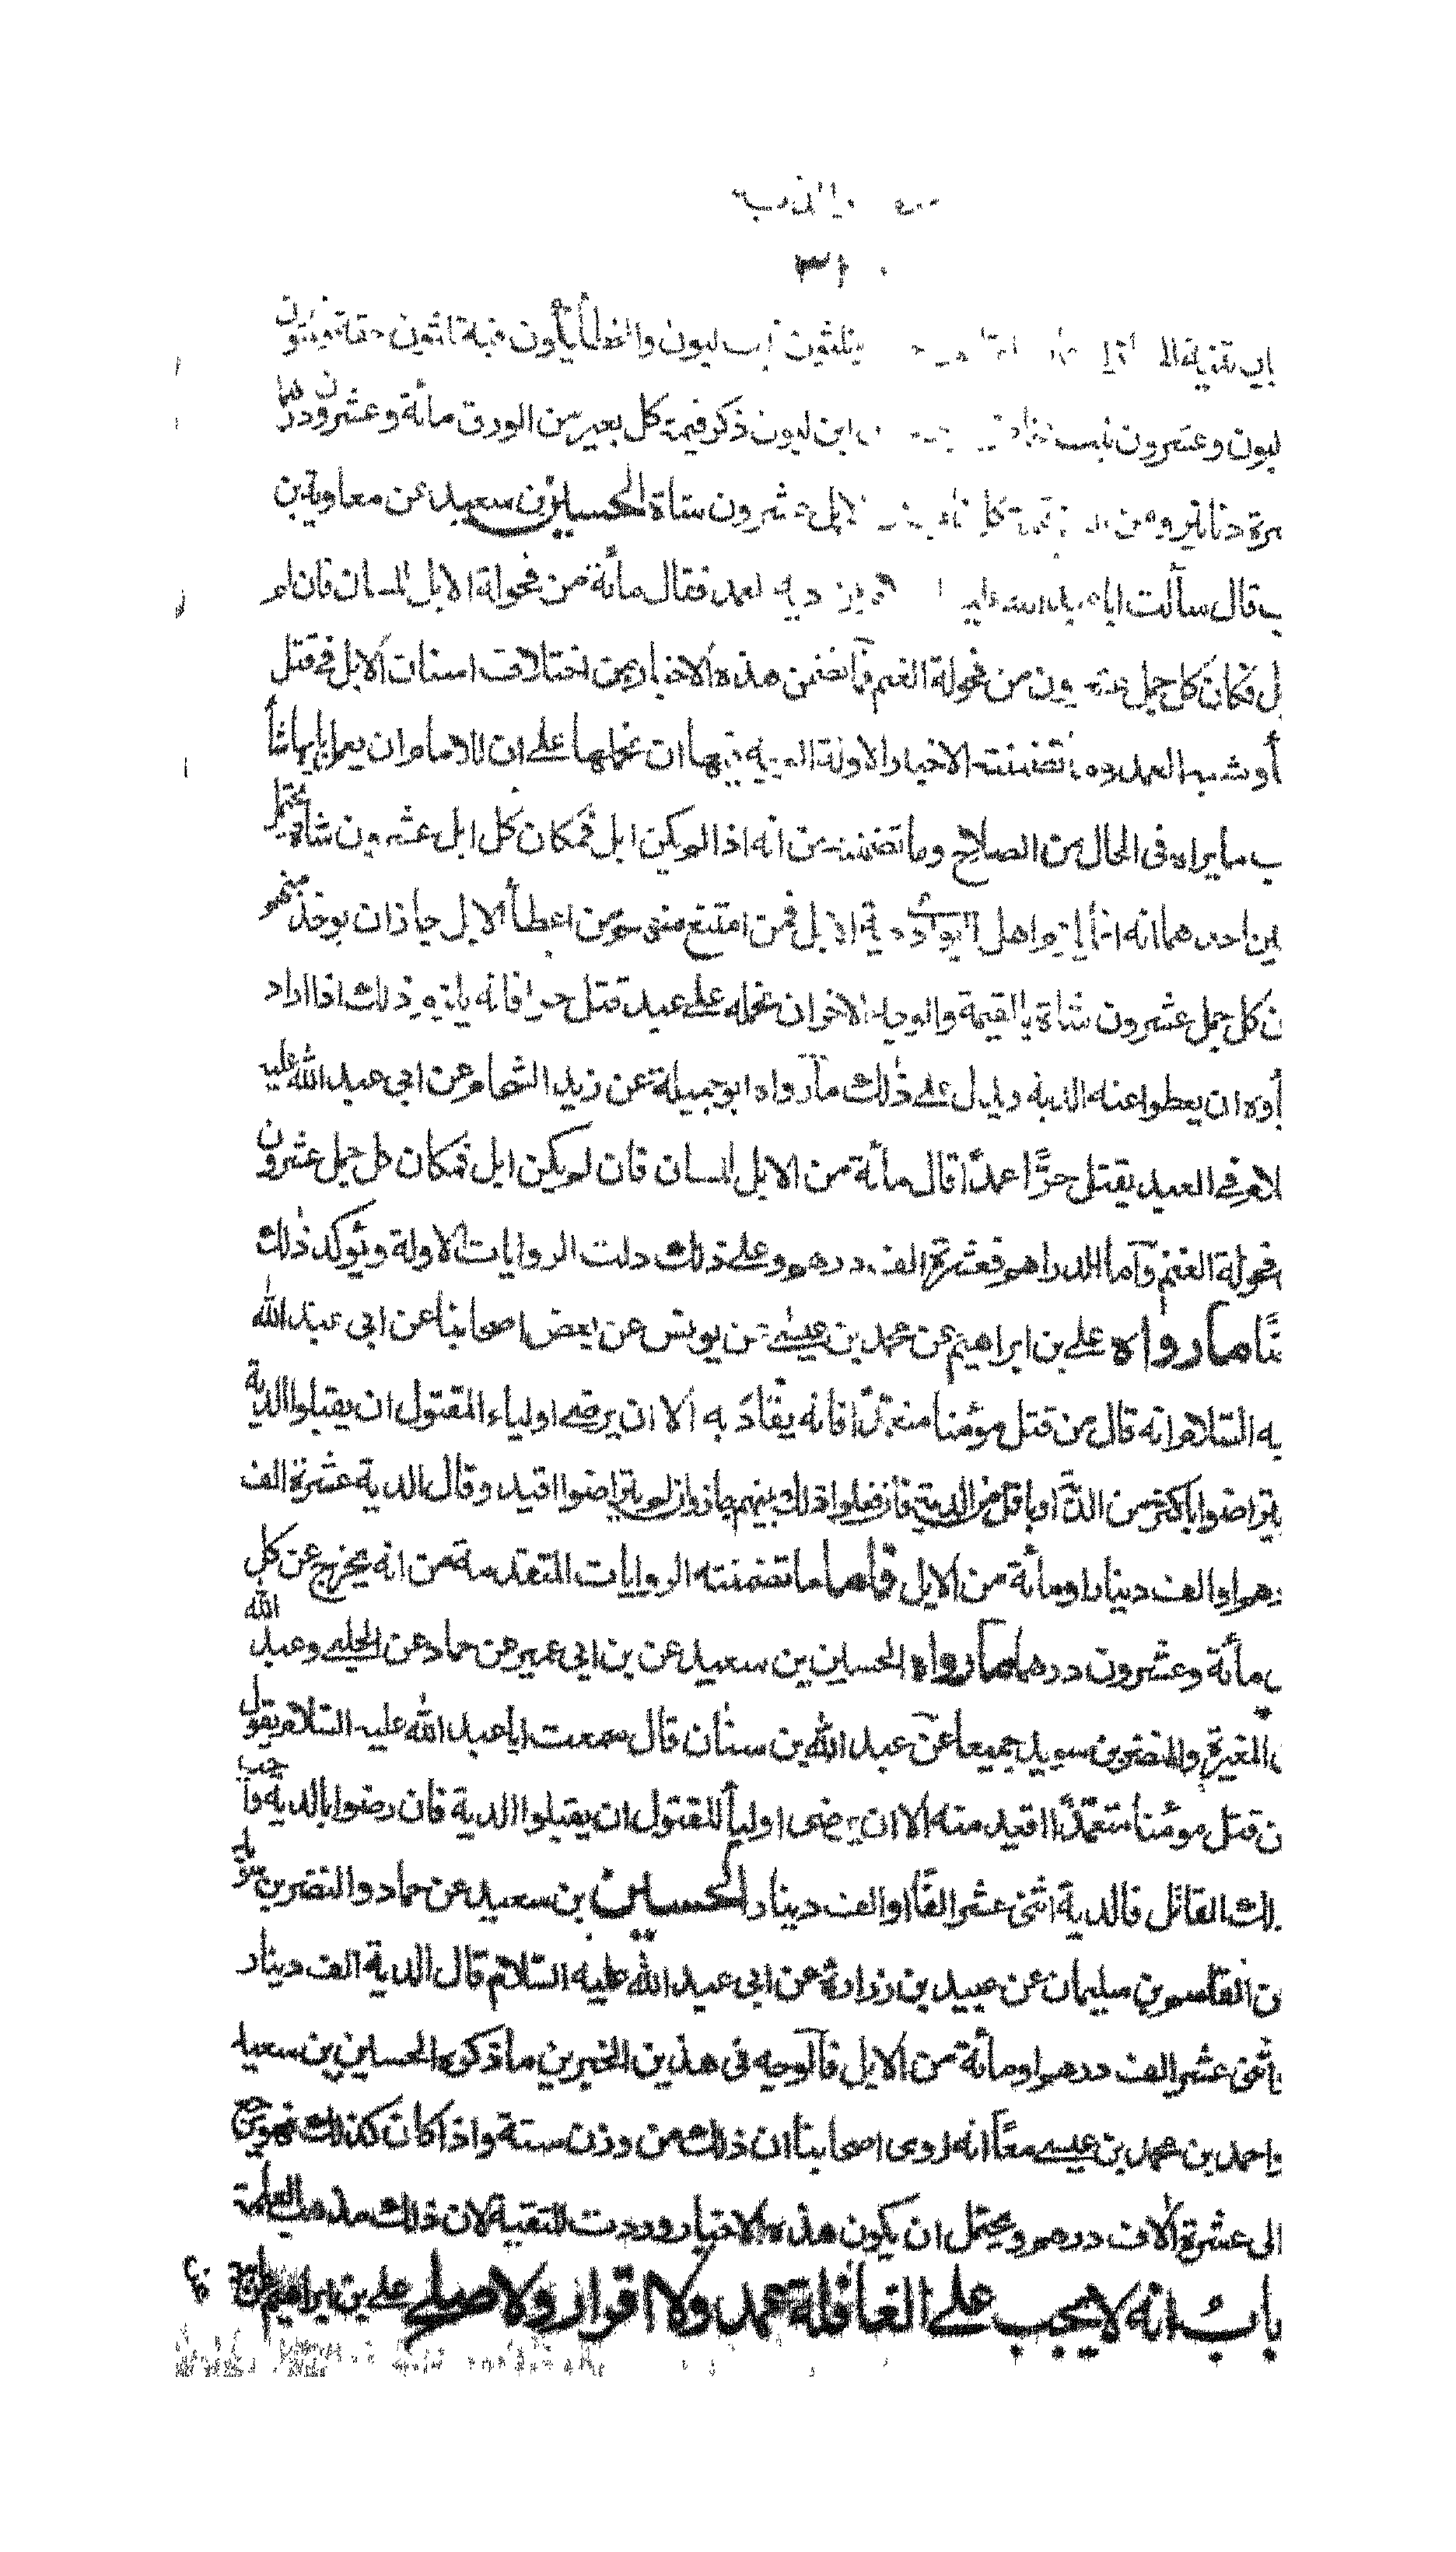 ٣١٠
ثلثون ابن لبون والخطأ يكون فيه ثلثون حقة وثلثون
لبون وعشرون بنت ابن لبون ذكر قيمة كل بعير من الورق مائة وعشرون درهما
دنانير ومن الابل عشرون شاة الحسين بن سعيد عن معاوية بن
قال سألت ابا عبد الله عليه دية العمد فقال مائة من فحولة الابل المسان فان لم
ل فمكان كل جمل عشرون من فحولة الغنم فما تضمن هذه الاخبار من اختلاف اسنان الابل في قتل
أو شبه العمد وما تضمنته الاخبار الاولة فيها ان نحملها على ان للامام ان يعمل بايها شاء
ب ما يراه في الحال من الصلاح وما تضمنته من انه اذا لم يكن ابل فمكان كل ابل عشرون شاة يحتمل
احدهما انه انما يلزم اهل البوادي دية الابل فمن امتنع منهم من اعطاء الابل جاز ان يؤخذ منهم
ن كل جمل عشرون شاة بالقيمة والوجه الاخر ان نحمله على عبد قتل حرا فانه يلزم ذلك اذا اراد
أوه ان يعطوا عنه الدية دليل على ذلك ما رواه ابو جميلة عن زيد الشحام عن ابي عبد الله عليه
لام في العبد يقتل حرًّا عمدًا قال مائة من الابل المسان فان لم يكن ابل فمكان كل جمل عشرون
فحولة الغنم وأما الدراهم فعشرة الف درهم وعلى ذلك دلت الروايات الاولة ويؤكد ذلك
ما رواه علي بن ابراهيم عن محمد بن عيسى عن يونس عن بعض اصحابنا عن ابي عبد الله
يه السلام انه قال من قتل مؤمنا متعمدًا فانه يقاد به الا ان يرضى اولياء المقتول ان يقبلوا الدية
يتراضوا باكثر من الدية او باقل من الدية فان فعلوا ذلك بينهم جاز وان لم يتراضوا اقيد وقال الدية عشرة الف
درهم او الف دينار او مائة من الابل فأما ما تضمنته الروايات المتقدمة من انه يخرج عن كل
مائة وعشرون درهما ما رواه الحسين بن سعيد عن بن ابي عمير عن حماد عن الحلبي وعبد الله
المغيرة والنضر بن سويد جميعا عن عبد الله بن سنان قال سمعت ابا عبد الله عليه السلام يقول
ن قتل مؤمنا متعمّدًا اقيد منه الا ان يرضى اوليأ المقتول ان يقبلوا الدية فان رضوا بالدية واحب
ذلك القاتل فالدية اثنى عشر الفًا او الف دينار الحسين بن سعيد عن حماد والنضر بن سويد
ن القاسم بن سليمان عن عبيد بن زرارة عن ابي عبد الله عليه السلام قال الدية الف دينار
اثنى عشر الف درهم او مائة من الابل فالوجه في هذين الخبرين ما ذكره الحسين بن سعيد
واحمد بن محمد بن عيسى معًا انه روى اصحابنا ان ذلك من وزن ستة واذا كان كذلك فهو يرجع
الى عشرة آلاف درهم ويحتمل ان يكون هذه الاخبار وردت للتقية لان ذلك مذهب العامة
باب انه لا يجب على العاقلة عمد ولا اقرار ولا صلح علي بن ابراهيم